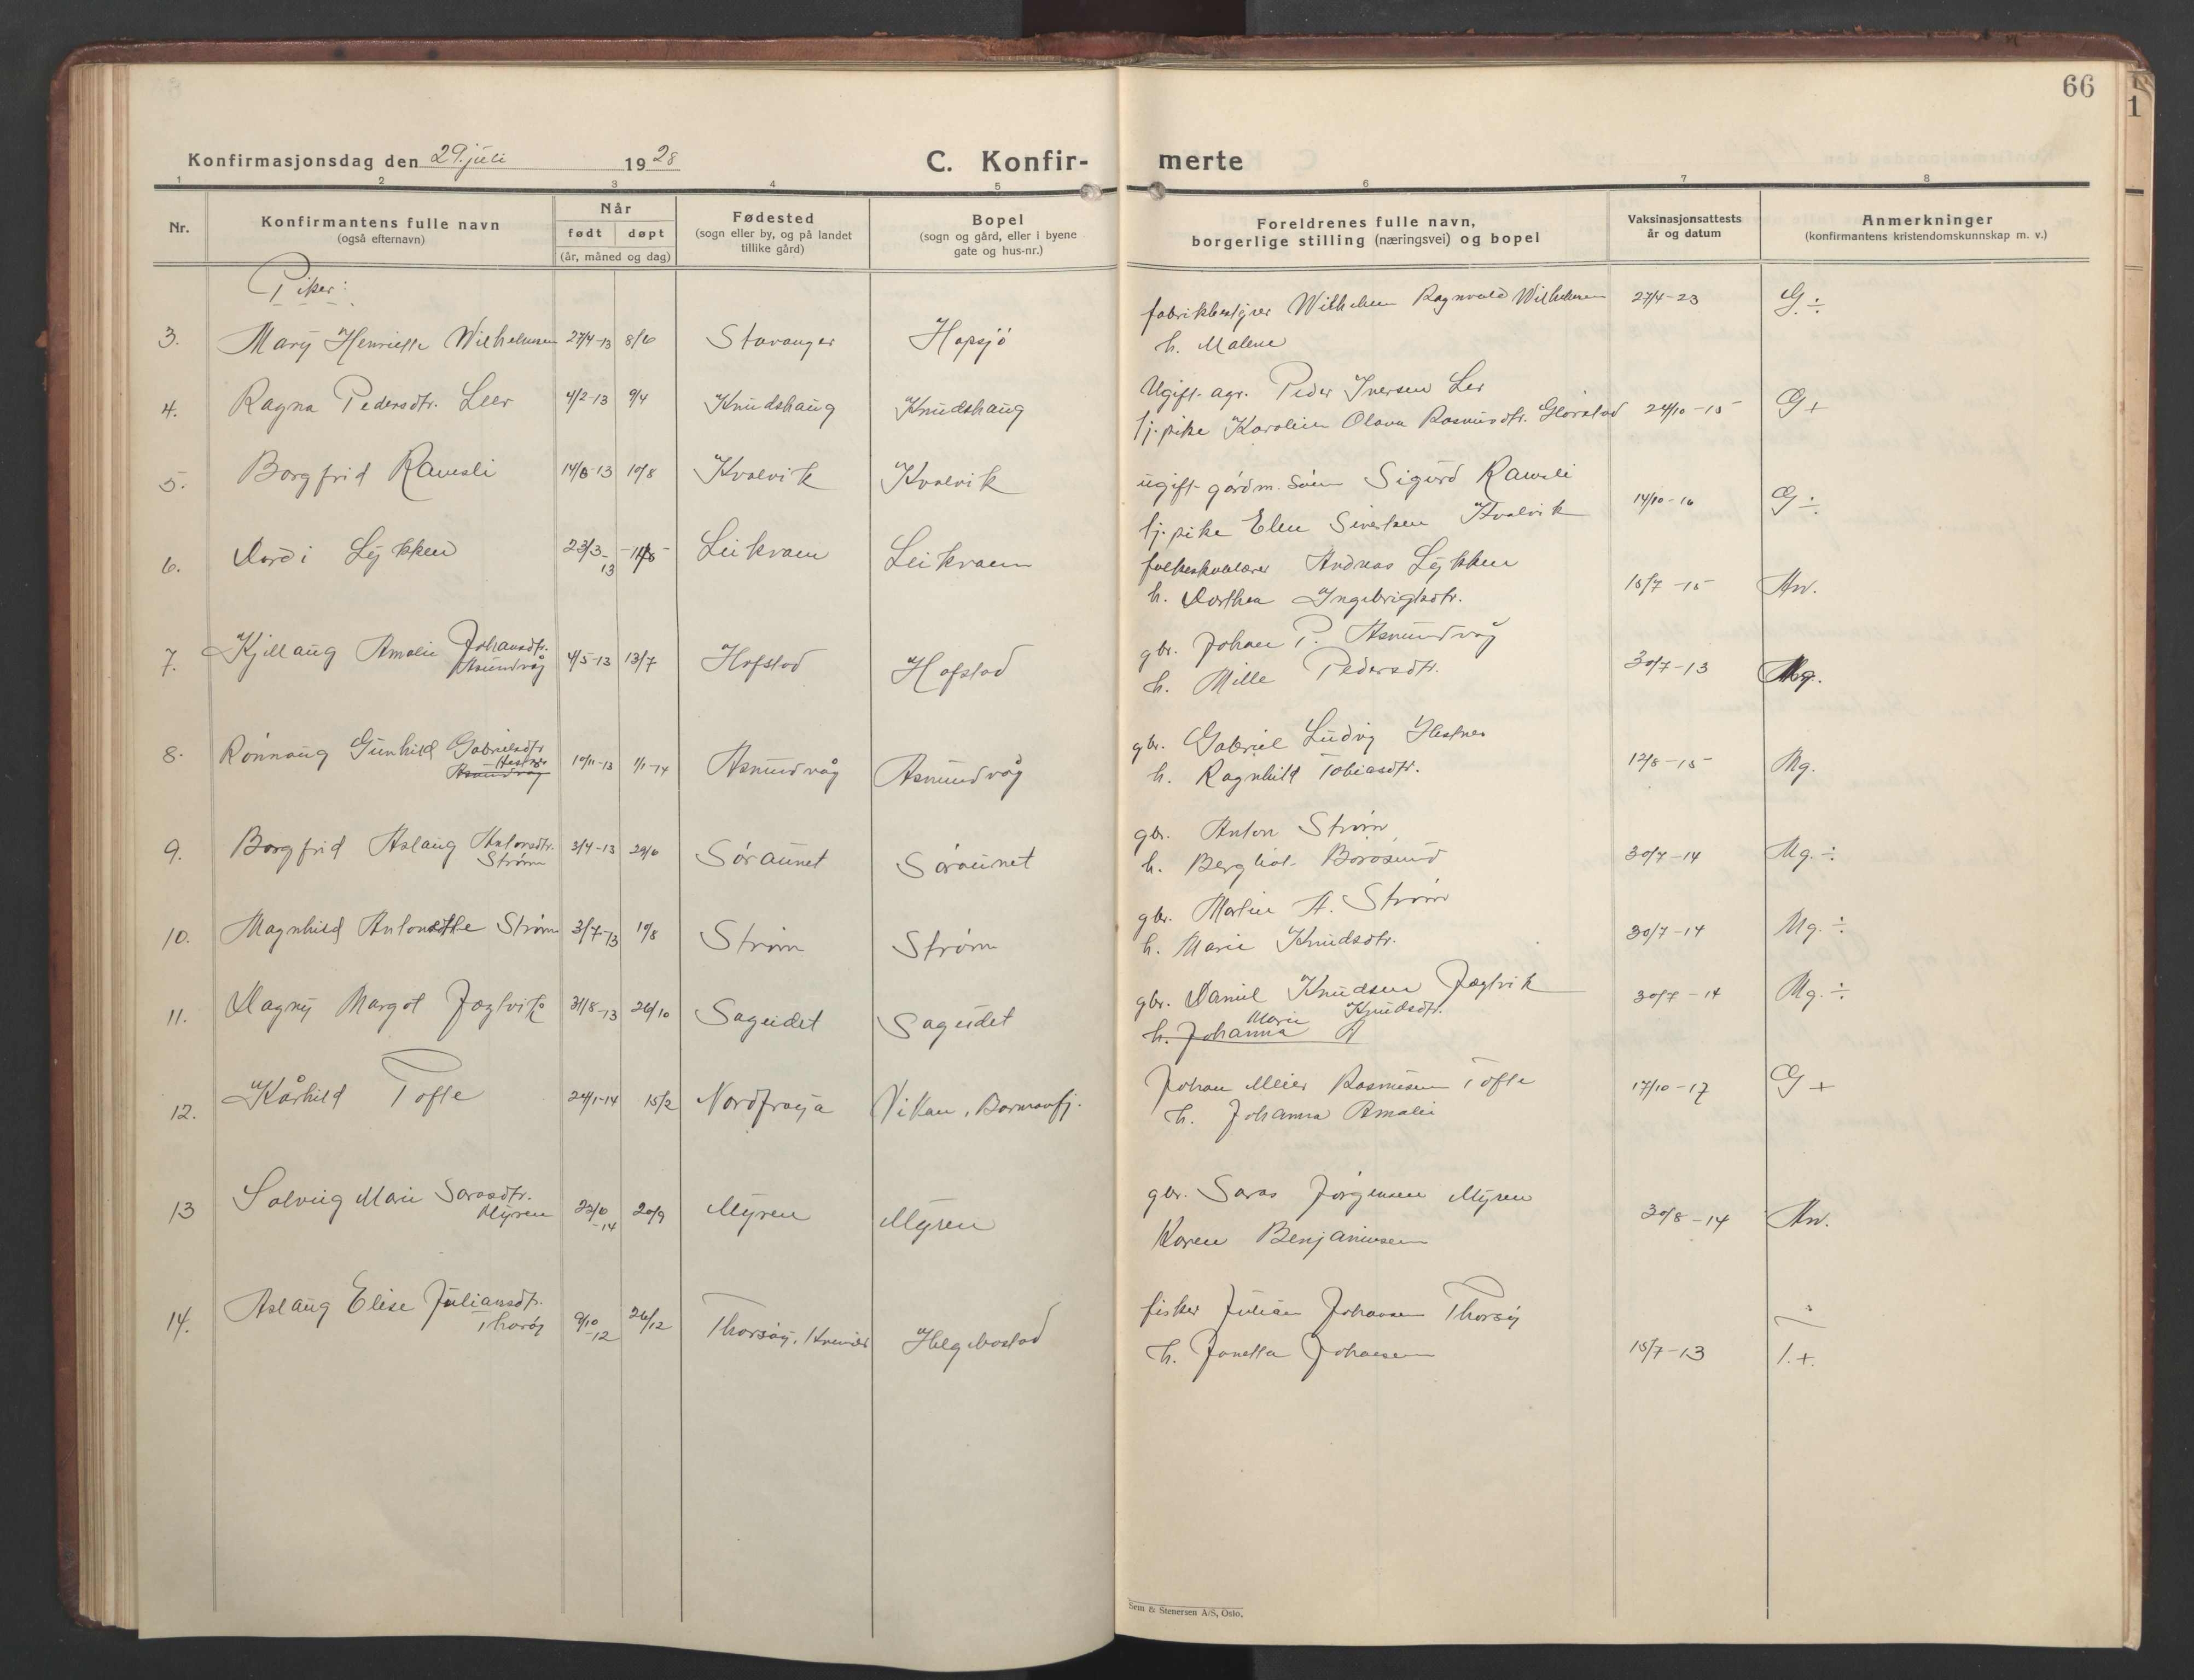 66
1
Konfirmasjonsdag den 29. juli 1928
C. Konfir- merte
1 2 3 4 5 6 7 8
Nr.
Konfirmantens fulle navn
(også efternavn)
Når
født døpt
(år, måned og dag)
Fødested
(sogn eller by, og på landet
tillike gård)
Bopel
(sogn og gård, eller i byene
gate og hus-nr.)
Foreldrenes fulle navn,
borgerlige stilling (næringsvei) og bopel
Vaksinasjonsattests
år og datum
Anmerkninger
(konfirmantens kristendomskunnskap m. v.)
Piker:
3. Mary Henriette Wilhelmsen 27/4-13 8/6 Stavanger Hopsjö
fabrikkbestyrer Wilhelm Ragnvald Wilhelmsen 27/4-23 G ÷
h. Malene
4. Ragna Pedersdtr. Leer 4/2-13 9/4 Knudshaug Knudshaug
Ugift agr. Peder Iversen Ler
tj. pike Karolin Olava Rasmusdtr. Glørstad 24/10-15 G +
5. Borgfrid Ramsli 14/6-13 10/8 Kvalvik Kvalvik
ugift gårdm. sön Sigurd Ramsli
tj. pike Elen Sivertsen Kvalvik 14/10-16 G ÷
6. Dordi Lykken 23/3-13 Leikvam Leikvam
folkeskolelærer Andreas Lykken
h. Dorthea Ingebrigtsdtr. 15/7-15
7. Kjellaug Amalie Johansdtr.
Asmundvåg 4/5-13 13/7 Hofstad Hofstad
gbr. Johan P. Asmundvåg
h. Mille Pedersdtr. 30/7-13 Mg.
8. Rönnaug Gunhild Gabrielsdtr.
Hestnes
Asmundvåg 10/11-13 1/1-14 Asmundvåg Asmundvåg
gbr. Gabriel Ludvig Hestnes
h. Ragnhild Tobiasdtr. 12/8-15 Mg.
9. Borgfrid Aslaug Antonsdtr.
Strøm 3/4-13 29/6 Søraunet Søraunet
gbr. Anton Strøm
h. Bergliot Borösund 30/7-14 Mg. ÷
10. Magnhild Antonette Strøm 3/7-13 10/8 Strøm Strøm
gbr. Martin A. Strøm
h. Marie Knudsdtr. 30/7-14 Mg. ÷
11. Dagny Margot Jøgtvik 31/8-13 26/10 Sageidet Sageidet
gbr. Daniel Knudsen Jøgtvik 30/7-14 Mg. ÷
Marie Knudsdtr.
h. Johanna A
12. Kårhild Tofte 24/1-14 15/2 Nordfrøya Vikan, Barmanfj.
Johan Meier Rasmusen Tofte 17/10-17 G +
h. Johanna Amalie
13 Solveig Marie Sarasdtr.
Myren 20/9 Myren Myren
gbr. Saras Jørgensen Myren
Karen Benjaminsen 30/8-14
14. Aslaug Elise Juliansdtr.
Thorsøy 9/10-12 26/12 Thorsøy, Helgebostad
fisker Julian Johansen Thorsøy
h. Janetta Johansen 15/7-13 T. +
Sem & Stenersen A/S, Oslo.